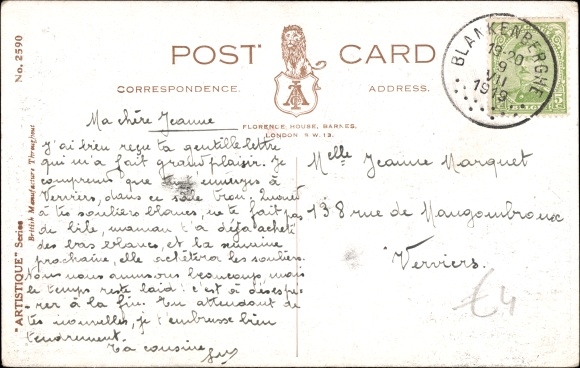 No. 2590
"ARTISTIQUE" Series
British Manufacture Throughout
POST CARD
CORRESPONDENCE.
ADDRESS.
FLORENCE HOUSE, BARNES,
LONDON S.W.13.
BLANKENBERGHE
19-20
9
VII
Ma chère Jeanne
J'ai bien reçu ta gentille lettre
qui m'a fait grand plaisir. Je
comprends que tu t'ennuies à
Verviers, dans ce sale trou. Quant
à tes souliers blancs, ne te fait pas
de bile, maman t'a déjà acheté
des bas blancs, et la semaine
prochaine, elle achètera les souliers.
Nous nous amusons beaucoup, mais
le temps reste laid! c'est à désespé-
rer à la fin. En attendant de
tes nouvelles, je t'embrasse bien
tendrement.
Ta cousine
Melle Jeanne Marquet
138 rue de Mangombroux
Verviers.
€4